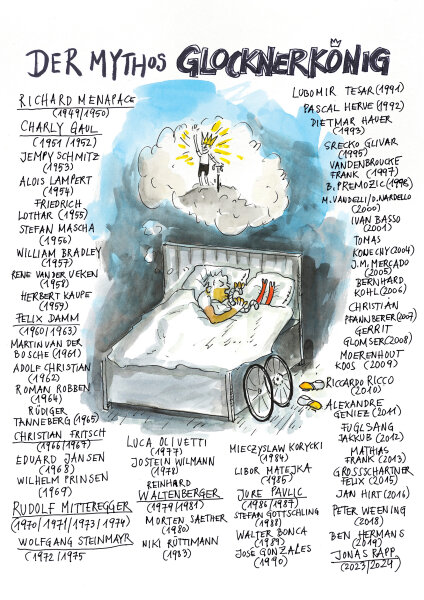 DER MYTHOS GLOCKNERKÖNIG
RICHARD MENAPACE
(1949/1950)
CHARLY GAUL
(1951/1952)
JEMPY SCHMITZ
(1953)
ALOIS LAMPERT
(1954)
FRIEDRICH
LOTHAR (1955)
STEFAN MASCHA
(1956)
WILLIAM BRADLEY
(1957)
RENE VAN DER VEKEN
(1958)
HERBERT KAUPE
(1959)
FELIX DAMM
(1960/1963)
MARTIN VAN DER
BOSCHE (1961)
ADOLF CHRISTIAN
(1962)
ROMAN ROBBEN
(1964)
RÜDIGER
TANNEBERG (1965)
CHRISTIAN FRITSCH
(1966/1967)
EDUARD JANSEN
(1968)
WILHELM PRINSEN
(1969)
RUDOLF MITTEREGGER
(1970/1971/1973/1974)
WOLFGANG STEINMAYR
(1972/1975
LUCA OLIVETTI
(1977)
JOSTEIN WILMANN
(1978)
REINHARD
WALTENBERGER
(1979/1981)
MORTEN SAETHER
(1980)
NIKI RÜTTIMANN
(1983)
MIECZYSLAW KORYCKI
(1984)
LIBOR MATEJKA
(1985)
JURE PAVLIC
(1986/1987)
STEFAN GOTTSCHLING
(1988)
WALTER BONCA
(1989)
JOSE GONZALES
(1990)
LUBOMIR TESAR (1991)
PASCAL HERVE (1992)
DIETMAR HAUER
(1993)
SRECKO GLIVAR
(1995)
VANDENBROUCKE
FRANK (1997)
B. PREMOZIC (1998)
M. VANDELLI/D. NARDELLO
(2000)
IVAN BASSO
(2001)
TOMAS
KONECHY (2004)
J.M. MERCADO
(2005)
BERNHARD
KOHL (2006)
CHRISTIAN
PFANNBERER (2007)
GERRIT
GLOMSER (2008)
MOERENHOUT
KOOS (2009)
RICCARDO RICCO
(2010)
ALEXANDRE
GENIEZ (2011)
FUGLSANG
JAKKUB (2012)
MATHIAS
FRANK (2013)
GROSSSCHARTNER
FELIX (2015)
JAN HIRT (2016)
PETER WEENING
(2018)
BEN HERMANS
(2019)
JONAS RAPP
(2023/2024)